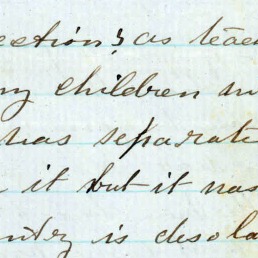 ections as teac
ny children m
has separat
it but it has
ntry is desola